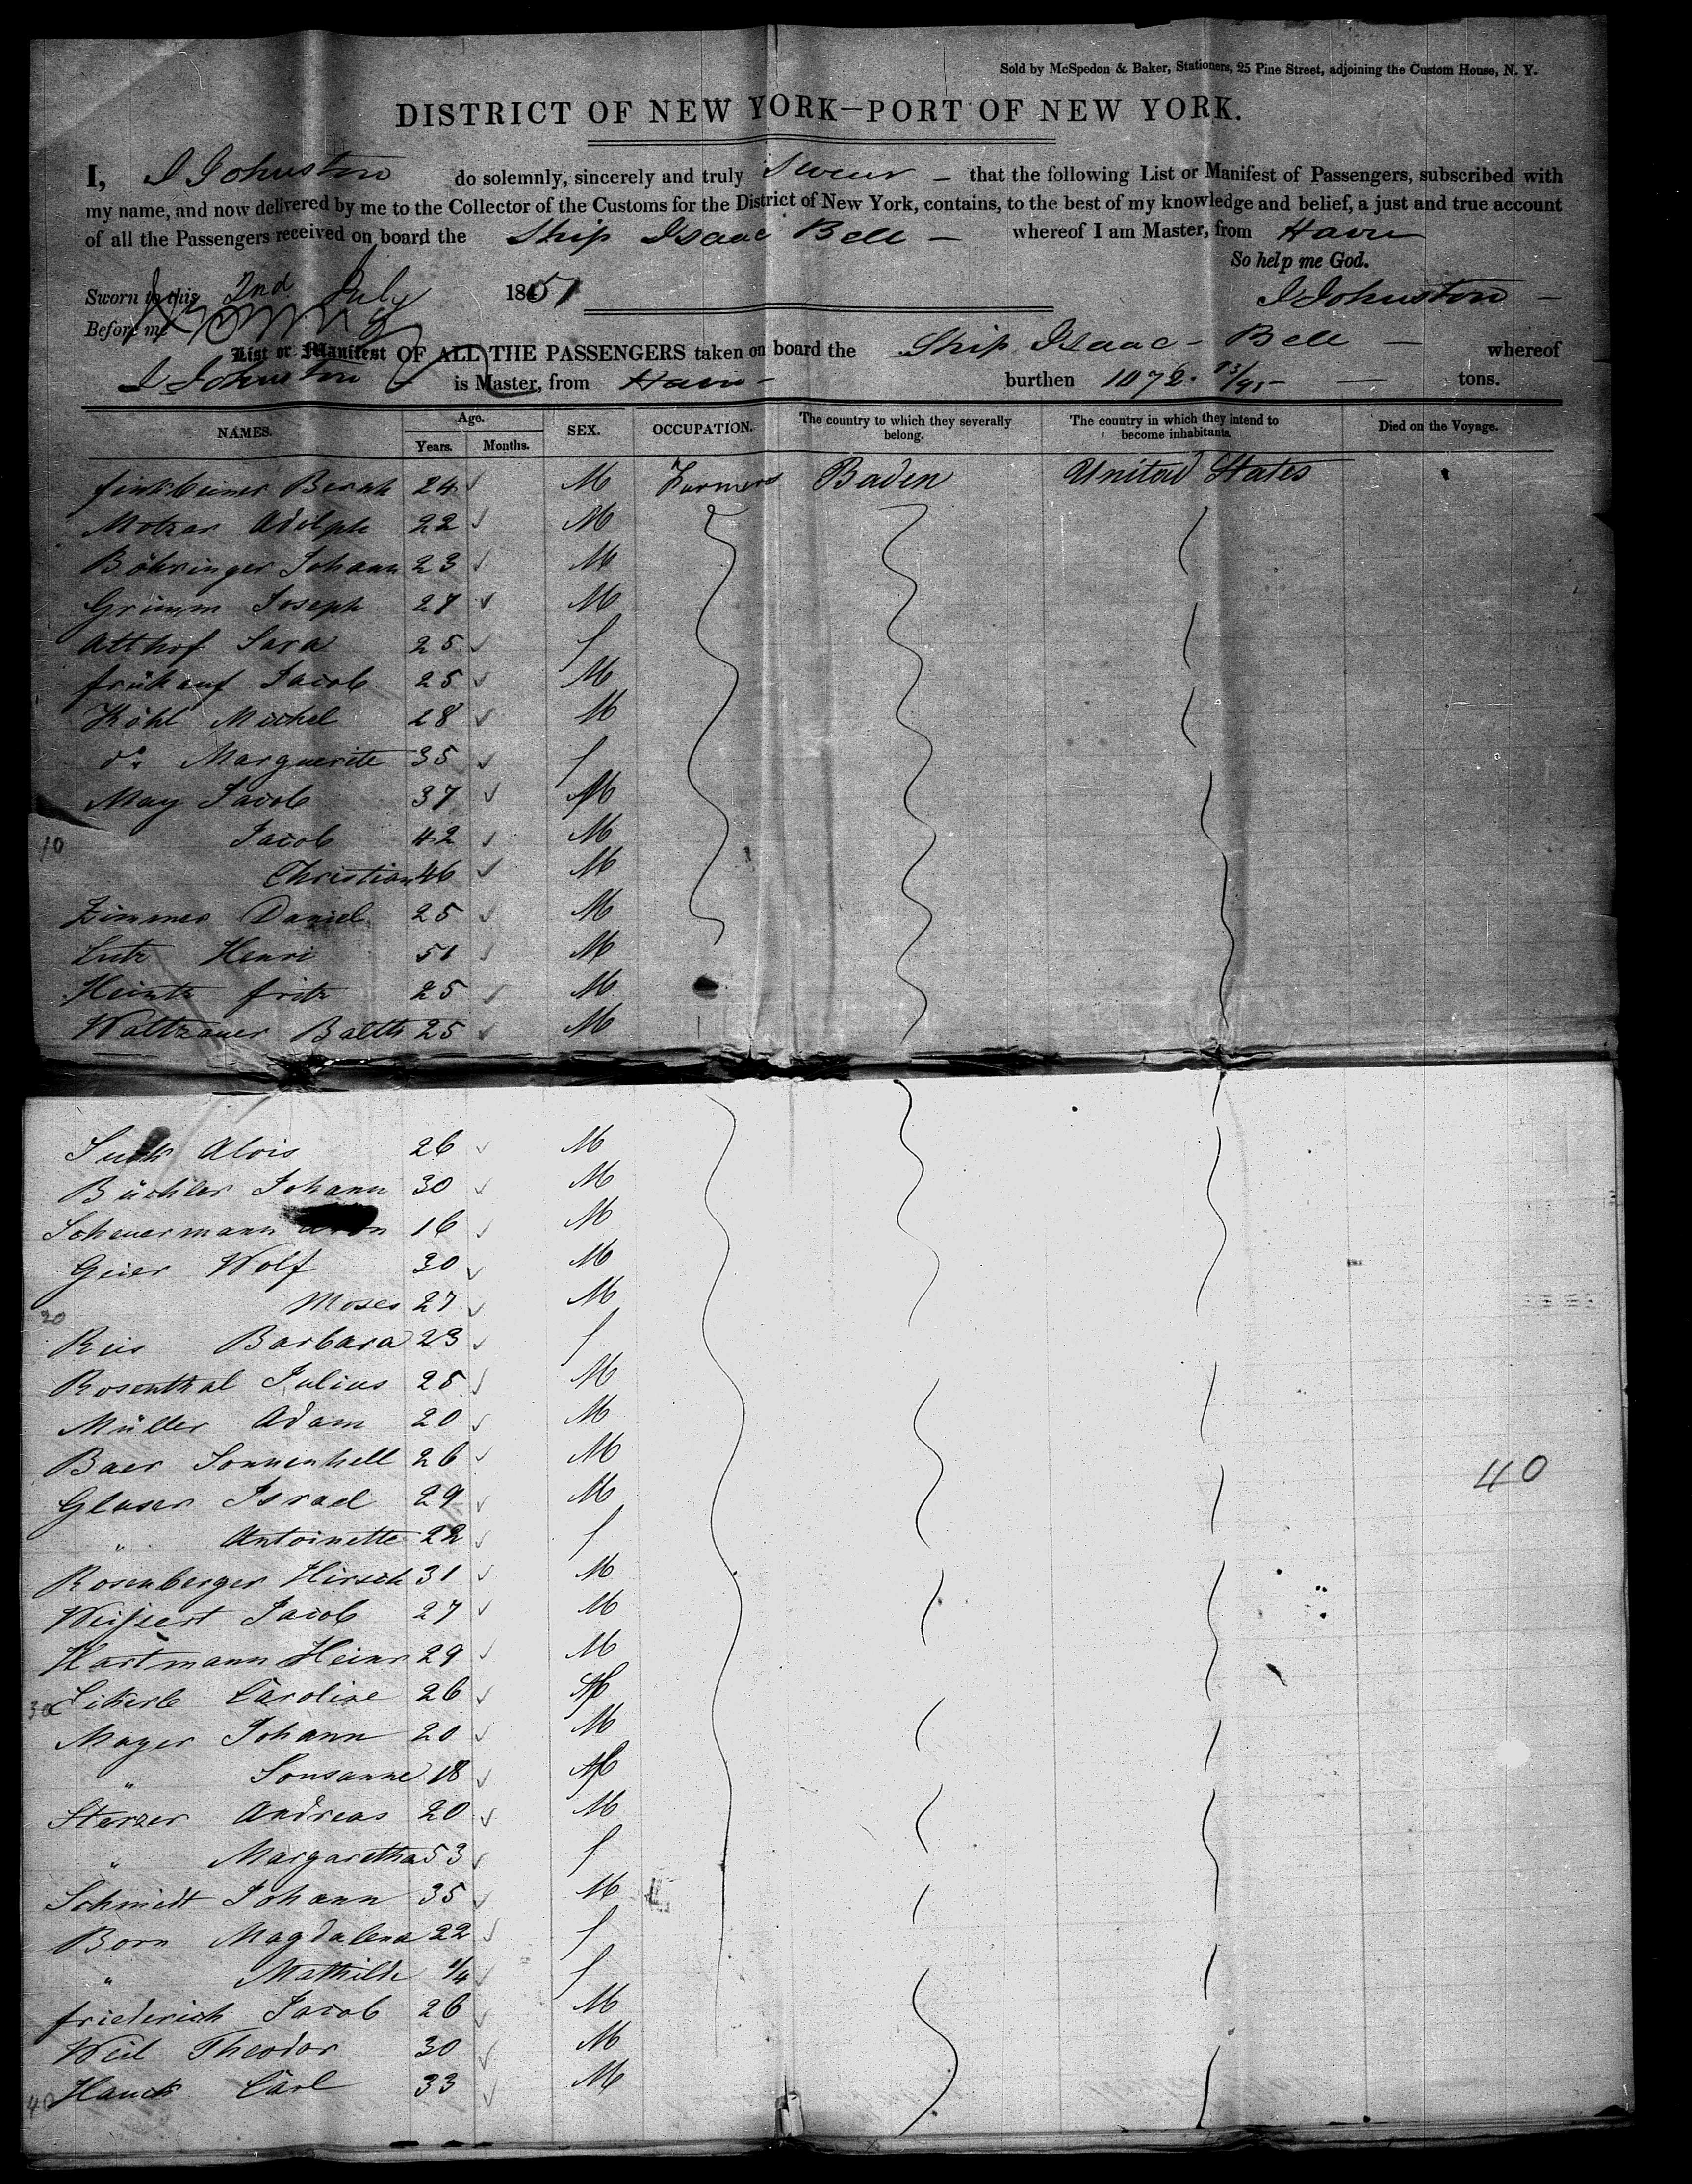 Sold by McSpedon & Baker, Stationers, 25 Pine Street, adjoining the Custom House, N. Y.
DISTRICT OF NEW YORK—PORT OF NEW YORK.
I, I Johnston do solemnly, sincerely and truly Swear — that the following List or Manifest of Passengers, subscribed with
my name, and now delivered by me to the Collector of the Customs for the District of New York, contains, to the best of my knowledge and belief, a just and true account
of all the Passengers received on board the Ship Isaac Bell — whereof I am Master, from Havre
So help me God.
Sworn to this 2nd July 1851 I Johnston —
Before me
List or Manifest OF ALL THE PASSENGERS taken on board the Ship Isaac - Bell — whereof
I Johnston is Master, from Havre - burthen 1072. 93/95 — tons.
NAMES. Age. Years. Months. SEX. OCCUPATION. The country to which they severally belong. The country in which they intend to become inhabitants. Died on the Voyage.
finkbeiner Bernh 24 M Farmers Baden United States
Motzer Adolph 22 M
Böhringer Johann 23 M
Grimm Joseph 27 M
Atthof Sara 25 f
frühauf Jacob 25 M
Köhl Michel 28 M
do Marguerite 35 f
May Jacob 37 M
10 Jacob 42 M
Christian 46 M
Zimmer Daniel 25 M
Lutz Henri 51 M
Heintz fritz 25 M
Waltzauer Balth 25 M
Alois 26 M
Büchler Johann 30 M
Scheuermann 16 M
Geier Wolf 30 M
20 Moses 27 M
Reis Barbara 23 f
Rosenthal Julius 25 M
Müller Adam 20 M
Baer Sonnenhell 26 M
Glaser Israel 29 M 40
" Antoinette 22 f
Rosenberger Hirsch 31 M
Weissert Jacob 27 M
Hartmann Heinr 29 M
30 Caroline 26 f
Mayer Johann 20 M
" Sousanne 18 f
Sterzer Andreas 20 M
" Margaretha 53 f
Schmidt Johann 35 M
Born Magdalena 22 f
" Mathilde 1/4 f
friederich Jacob 26 M
Weil Theodor 30 M
40 Hauck Carl 33 M